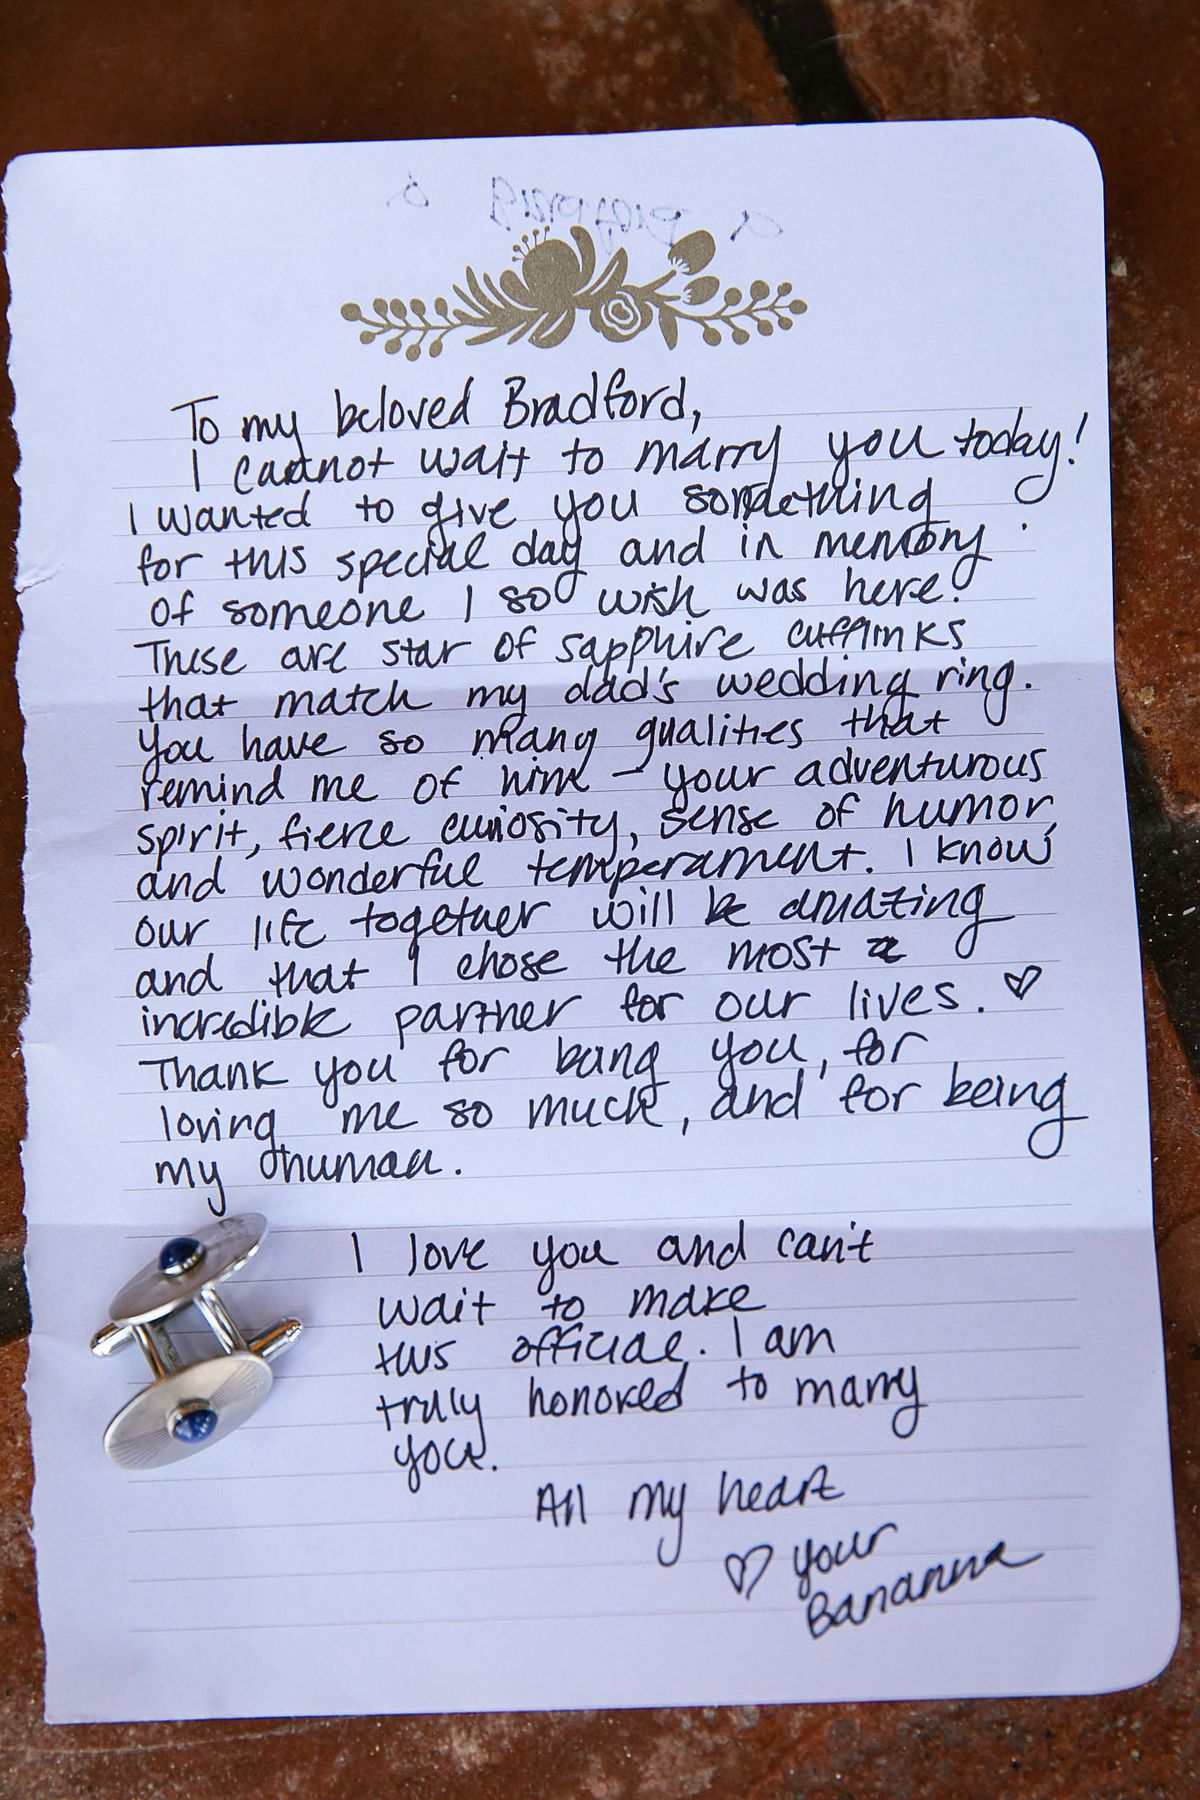 To my beloved Bradford,
I cannot wait to marry you today!
I wanted to give you something
for this special day and in memory
of someone I so wish was here.
These are star of sapphire cufflinks
that match my dad's wedding ring.
You have so many qualities that
remind me of him – your adventurous
spirit, fierce curiosity, sense of humor,
and wonderful temperament. I know
our life together will be amazing
and that I chose the most
incredible partner for our lives. ♡
Thank you for being you, for
loving me so much, and for being
my human.
I love you and can't
wait to make
this official. I am
truly honored to marry
you.
All my heart
♡ your
Bananna